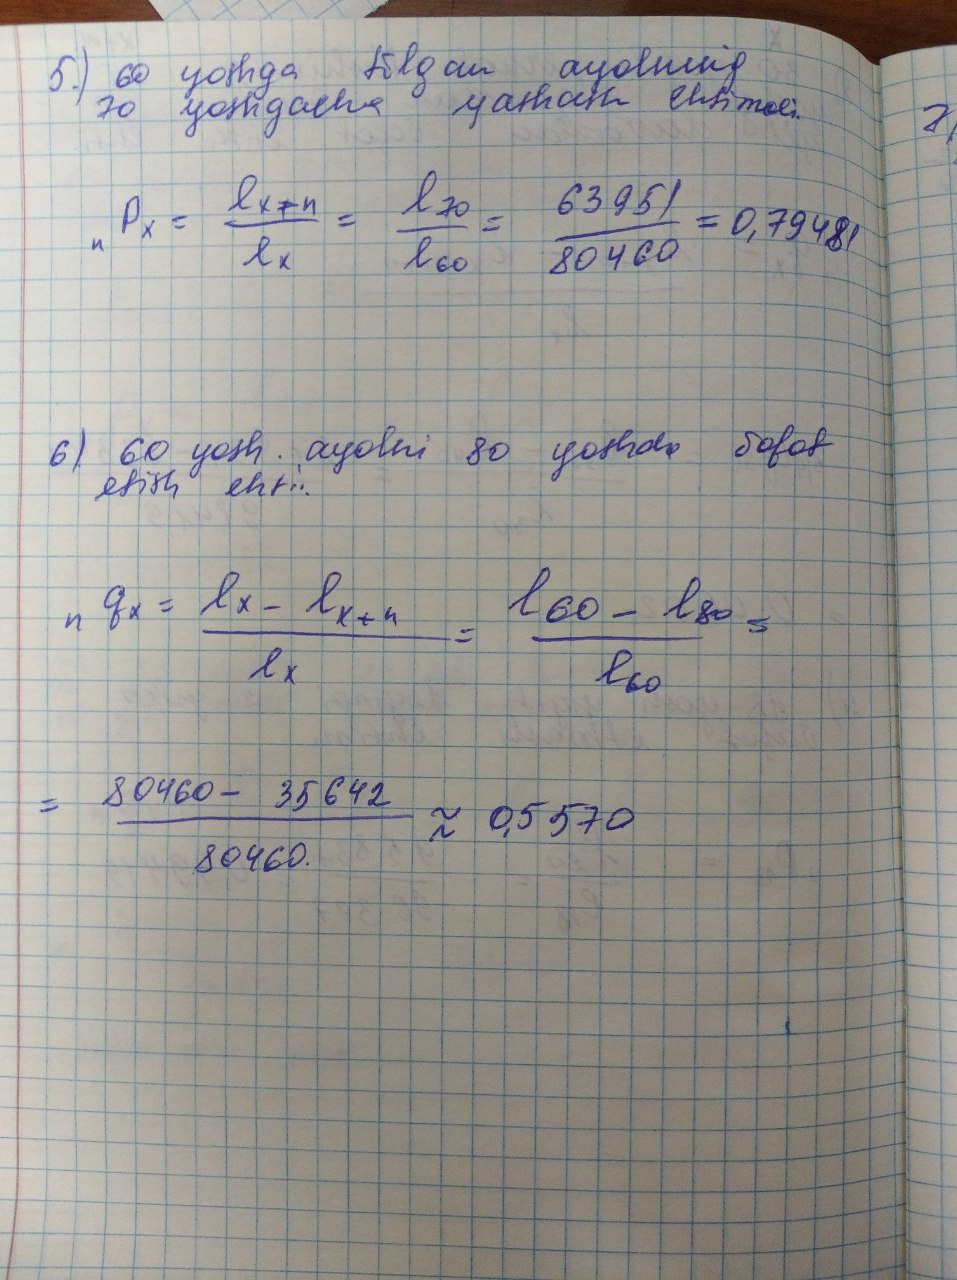 5.) 60 yoshga tulgan ayolning
70 yoshgacha yashash ehtimoli.
n Px = lx+n / lx = l70 / l60 = 63951 / 80460 = 0,79481
6) 60 yosh. ayolni 80 yoshda vofot
etish ehti..
n qx = lx - lx+n / lx = l60 - l80 / l60 =
= 80460 - 35642 / 80460. ≈ 0,5570
7)